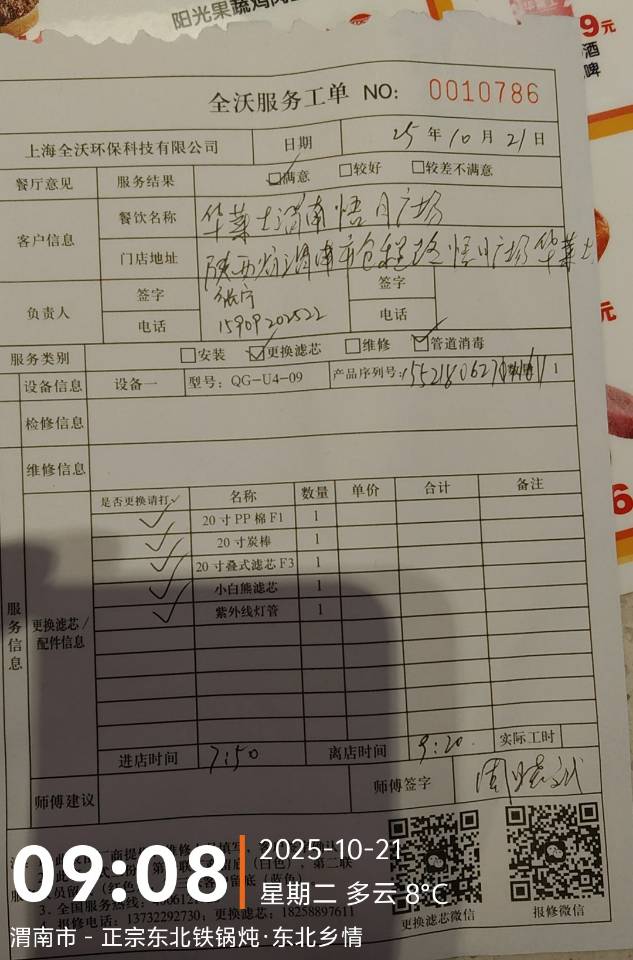 阳光果蔬鸡肉
9元
酒
啤
元
6
全沃服务工单 NO: 0010786
上海全沃环保科技有限公司 日期 25年10月21日
餐厅意见 服务结果 ☑满意 □较好 □较差不满意
客户信息 餐饮名称 华莱士渭南悟月广场
门店地址 陕西省渭南市仓程路悟月广场华莱士
负责人 签字 张宁 签字
电话 15909202522 电话
服务类别 □安装 ☑更换滤芯 □维修 ☑管道消毒
设备信息 设备一 型号: QG-U4-09 产品序列号: 1
检修信息
维修信息
服务信息
更换滤芯/配件信息
是否更换请打✓ 名称 数量 单价 合计 备注
✓ 20寸PP棉F1 1
✓ 20寸炭棒 1
✓ 20寸叠式滤芯F3 1
✓ 小白熊滤芯 1
✓ 紫外线灯管 1
进店时间 7:50 离店时间 9:20 实际工时
师傅建议 师傅签字
3. 全国服务热线:
4. 报修电话: 13732292730; 更换滤芯: 18258897611
更换滤芯微信 报修微信
09:08
2025-10-21
星期二 多云 8℃
渭南市 - 正宗东北铁锅炖·东北乡情